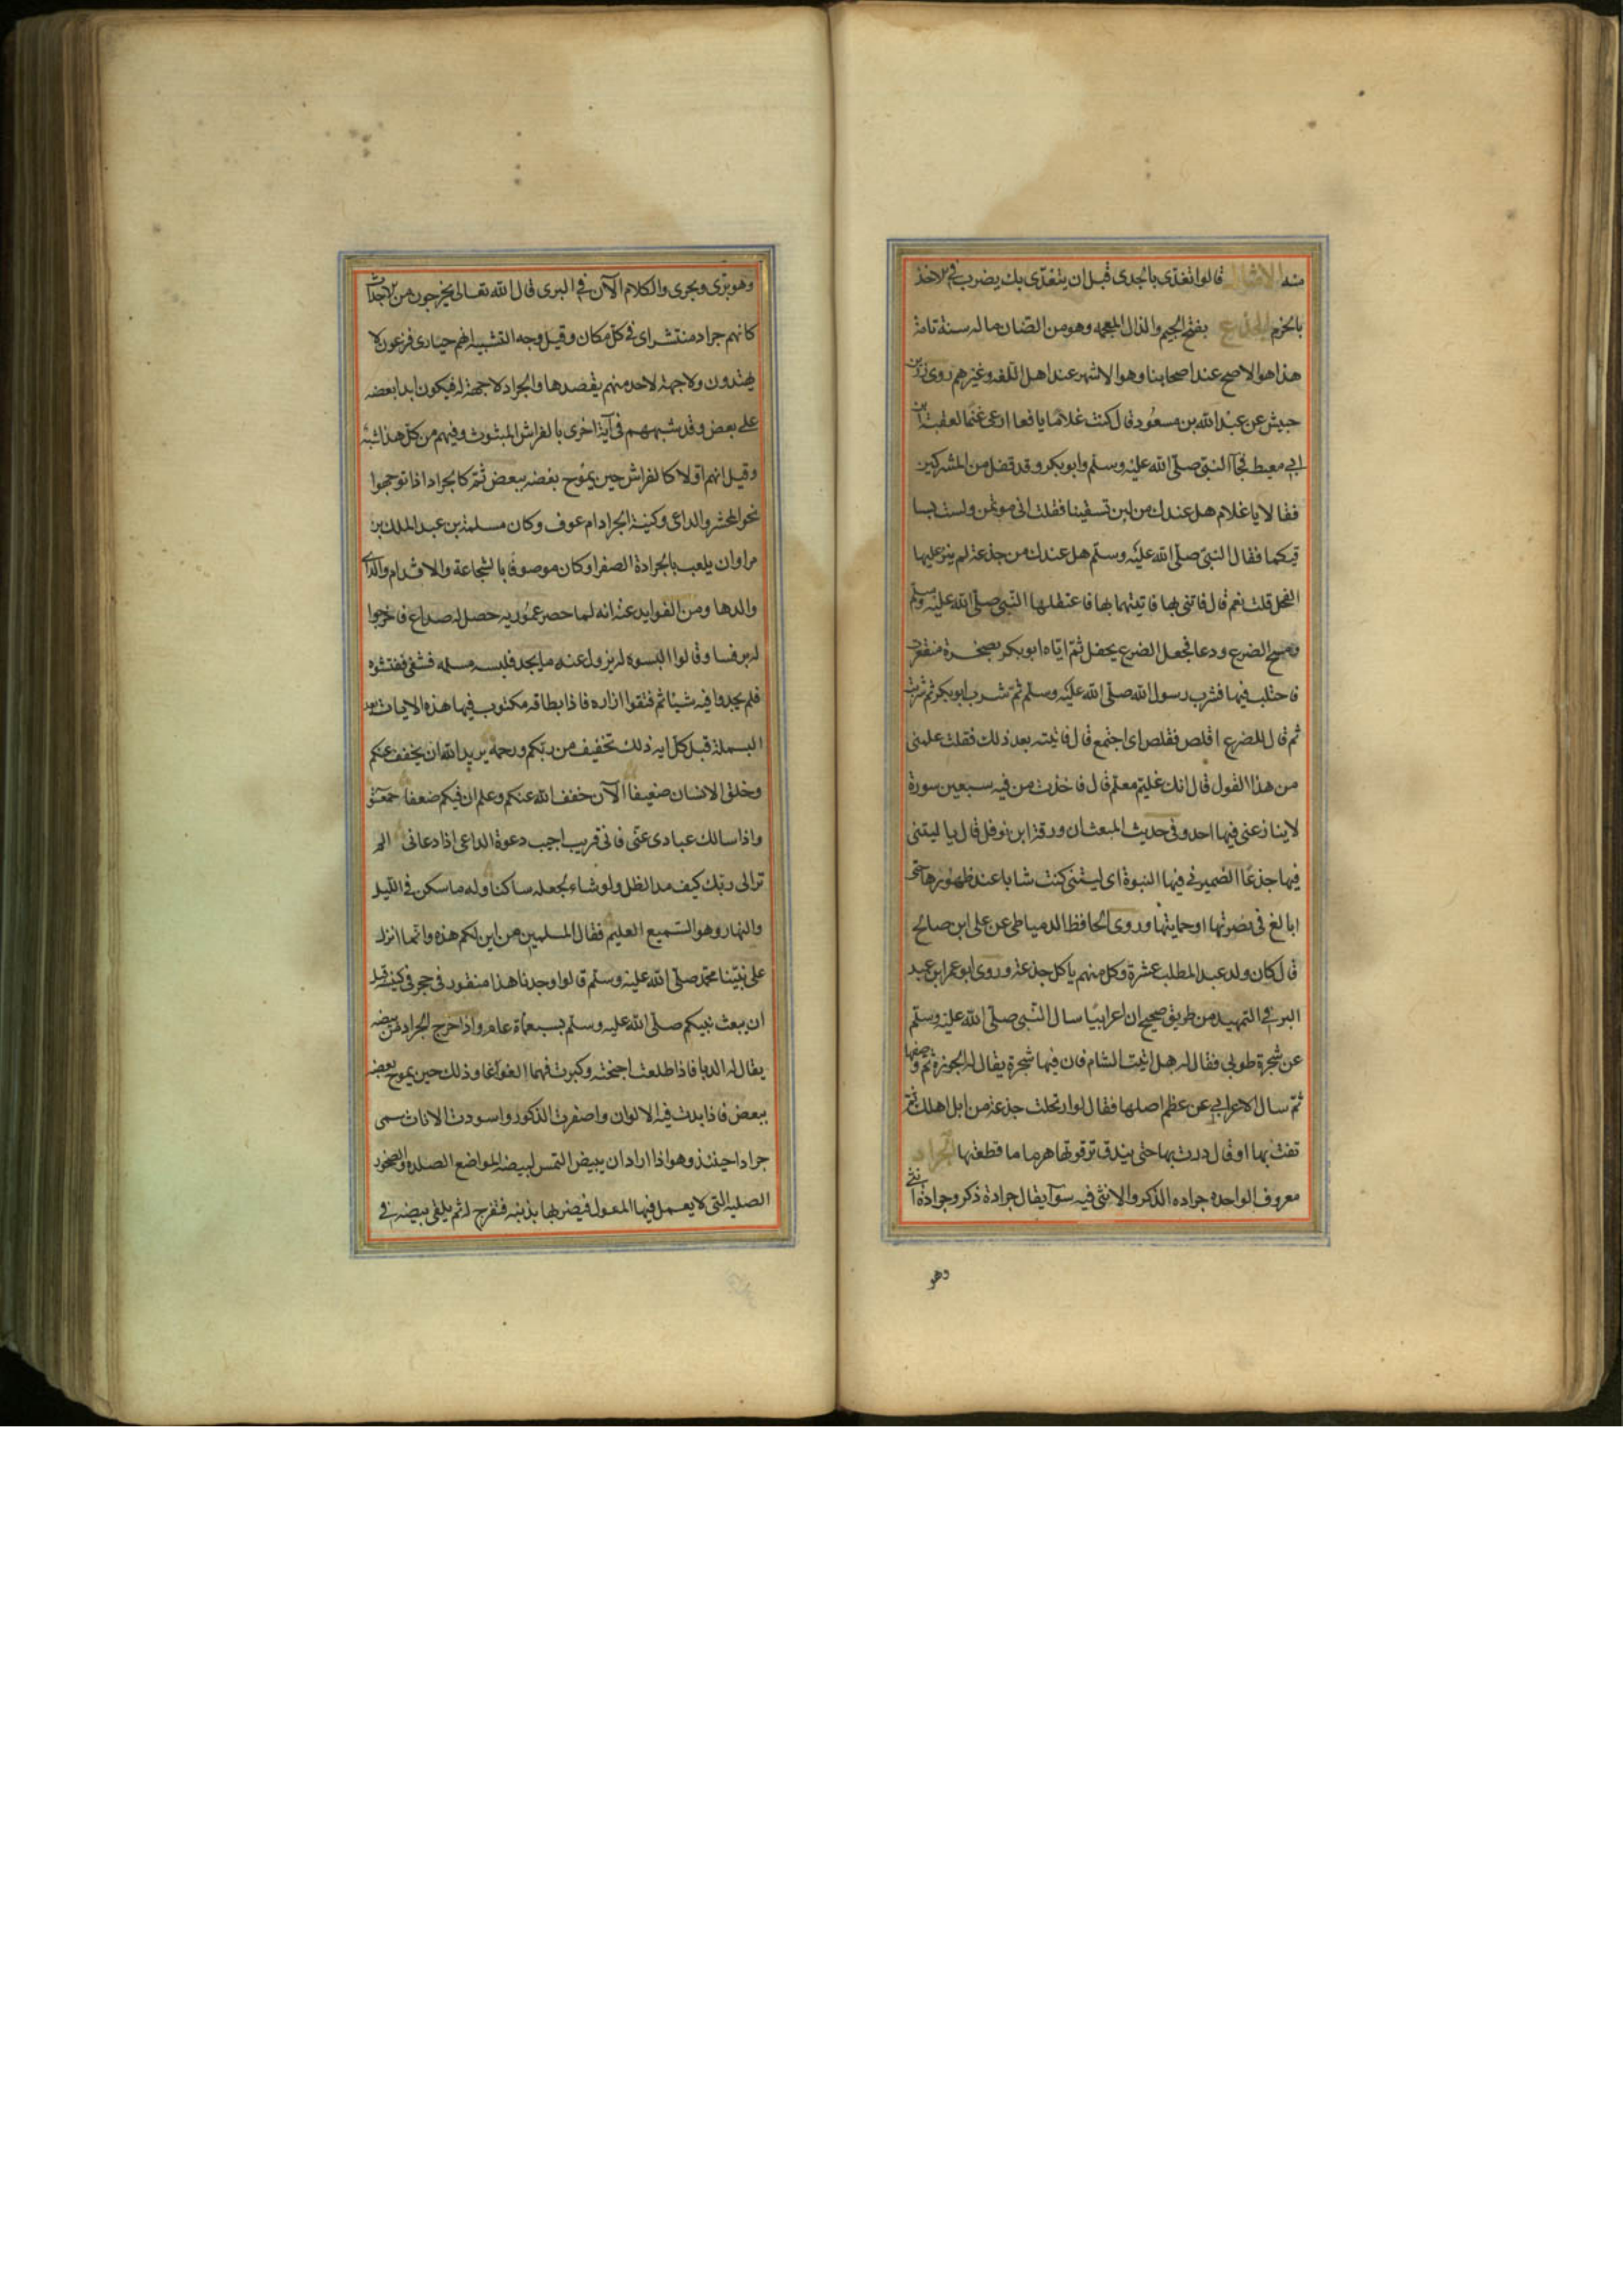 منه الامثال قالوا تغدى بالجدى قبل ان يتغدى بك يضرب فى الاخذ
بالحزم الجذع بفتح الجيم والذال المعجمه وهو من الضان ما له سنة تامة
هذا هو الاصح عند اصحابنا وهو الاشهر عند اهل اللغه وغيرهم روى زر بن
حبيش عن عبد الله بن مسعود قال كنت غلاما يافعا ارعى غنما لعقبة بن
ابى معيط فجآ النبى صلى الله عليه وسلم وابو بكر وقد نفل من المشركين
فقالا يا غلام هل عندك من لبن تسقينا فقلت انى موتمن ولست بسا
قيكما فقال النبى صلى الله عليه وسلم هل عندك من جذعة لم ينز عليها
الفحل قلت نعم قال فاتنى بها فاتيتهما بها فاعتقلها النبى صلى الله عليه وسلم
ومسح الضرع ودعا فجعل الضرع يحفل ثم اتاه ابو بكر بصخرة منقعرة
فاحتلب فيها فشرب رسول الله صلى الله عليه وسلم ثم شرب ابو بكر ثم شربت
ثم قال للضرع اقلص فقلص اى اجتمع قال فاتيته بعد ذلك فقلت علمنى
من هذا القول قال انك غليم معلم قال فاخذت من فيه سبعين سورة
لا ينازعنى فيها احد وفى حديث المبعث ان ورقة ابن نوفل قال يا ليتنى
فيها جذعا الضمير فى فيها النبوة اى ليتنى كنت شابا عند ظهورها حتى
ابالغ فى نصرتها او حمايتها وروى الحافظ الدمياطى عن على ابن صالح
قال كان ولد عبد المطلب عشرة وكل منهم ياكل جذعة وروى ابو عمر ابن عبد
البر فى التمهيد من طريق صحيح ان اعرابيا سال النبى صلى الله عليه وسلم
عن شجرة طوبى فقال له هل اتيت الشام فان فيها شجرة يقال لها الجوزة ثم وصفها
ثم سال الاعرابى عن عظم اصلها فقال لو ارتحلت جذعة من ابل اهلك ثم
تفت بها او قال درت بها حتى يندق ترقوتها هرما ما قطعتها الجراد
معروف الواحده جراده الذكر والانثى فيه سوآ يقال جرادة ذكر وجرادة انثى
وهو
وهو برى وبحرى والكلام الآن فى البرى قال الله تعالى يخرجون من الاجداث
كانهم جراد منتشر اى فى كل مكان وقيل وجه التشبيه انهم حيارى فزعون لا
يهتدون ولا جهة لاحد منهم يقصدها والجراد لا جهة له فيكون ابدا بعضه
على بعض وقد شبههم فى آية اخرى بالفراش المبثوث وفيهم من كل هذا شبه
وقيل انهم اولا كالفراش حين يموج بعضه ببعض ثم كالجراد اذا توجهوا
نحو المحشر والداعى وكنية الجراد ام عوف وكان مسلمة بن عبد الملك بن
مراوان يلعب بالجرادة الصفرا وكان موصوفا بالشجاعة والاقدام والراى
والدها ومن الفوايد عنه انه لما حصر عموريه حصل له صداع فاخرجوا
له برنسا وقالوا البسوه له يزول عنه ما يجد فلبسه مسلمه فشفى ففتشوه
فلم يجدوا فيه شيئا ثم فتقوا ازاره فاذا بطاقه مكتوب فيها هذه الايات بعد
البسملة قبل كل ايه ذلك تخفيف من ربكم ورحمة يريد الله ان يخفف عنكم
وخلق الانسان ضعيفا الآن خفف الله عنكم وعلم ان فيكم ضعفا حمعسق
واذا سالك عبادى عنى فانى قريب اجيب دعوة الداعى اذا دعانى الم
تر الى ربك كيف مد الظل ولو شاء لجعله ساكنا وله ما سكن فى الليل
والنهار وهو السميع العليم فقال المسلمين من اين لكم هذه وانما انزل
على نبينا محمد صلى الله عليه وسلم قالوا وجدنا هذا منقور فى حجر فى كنيسة قبل
ان يبعث نبيكم صلى الله عليه وسلم بسبعماة عام واذا خرج الجراد من بيضه
يقال له الدبا فاذا طلعت اجنحته وكبرت فهما الغوآغا وذلك حين يموج بعضه
ببعض فاذا بدت فيه الالوان واصفرت الذكور واسودت الاناث سمى
جرادا حينئذ وهو اذا اراد ان يبيض التمس لبيضه المواضع الصلده والصخور
الصلبه التى لا يعمل فيها المعول فيضربها بذنبه فتفرج له ثم يلقى بيضه فى